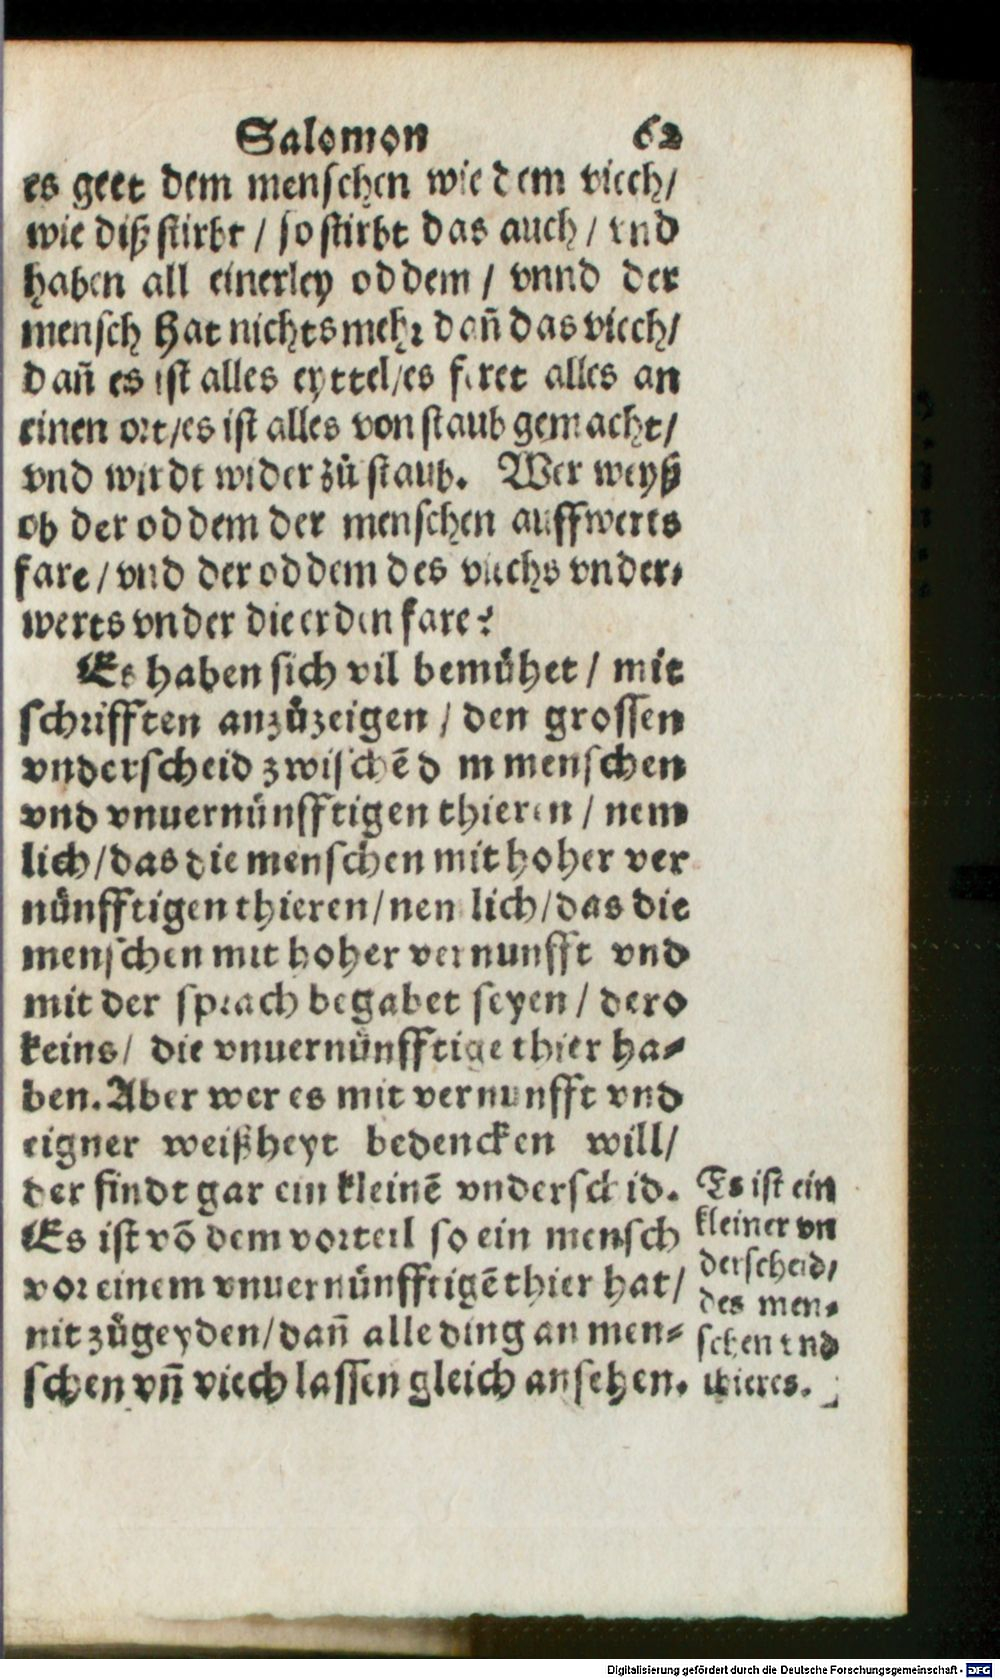 Salomon 62
es geet dem menschen wie dem viech/
wie diß stirbt / so stirbt das auch / vnd
haben all einerley oddem / vnnd der
mensch hat nichts mehr dañ das viech/
dañ es ist alles eyttel/es feret alles an
einen ort/es ist alles von staub gemacht/
vnd wirdt wider zů staub. Wer weyß
ob der oddem der menschen auffwerts
fare / vnd der oddem des viechs vnder⸗
werts vnder die erden fare?
Es haben sich vil bemühet / mit
schrifften anzůzeigen / den grossen
vnderscheid zwischē dem menschen
vnd vnuernünfftigen thieren / nem
lich/das die menschen mit hoher ver
nünfftigen thieren/nemlich/das die
menschen mit hoher vernunfft vnd
mit der sprach begabet seyen / dero
keins/ die vnuernünfftige thier ha⸗
ben. Aber wer es mit vernunfft vnd
eigner weißheyt bedencken will/
der findt gar ein kleinē vnderscheid.
Es ist võ dem vorteil so ein mensch
vor einem vnuernünfftigē thier hat/
nit zůgeyden/dañ alle ding an men⸗
schen vñ viech lassen gleich ansehen.
Es ist ein
kleiner vn
derscheid/
des men⸗
schen vnd
thieres.
Digitalisierung gefördert durch die Deutsche Forschungsgemeinschaft - DFG